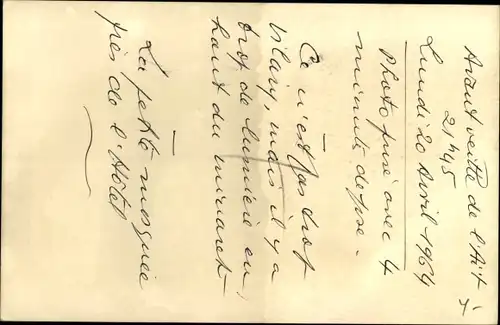 Avant veille de l'Aït à
21h45
Lundi 20 Avril 1964
Photo prise avec 4
minute de pose.
Ce n'est pas trop
vilain, mais il y a
trop de lumière en
haut du minaret
La petite mosquée
près de l'Hôtel